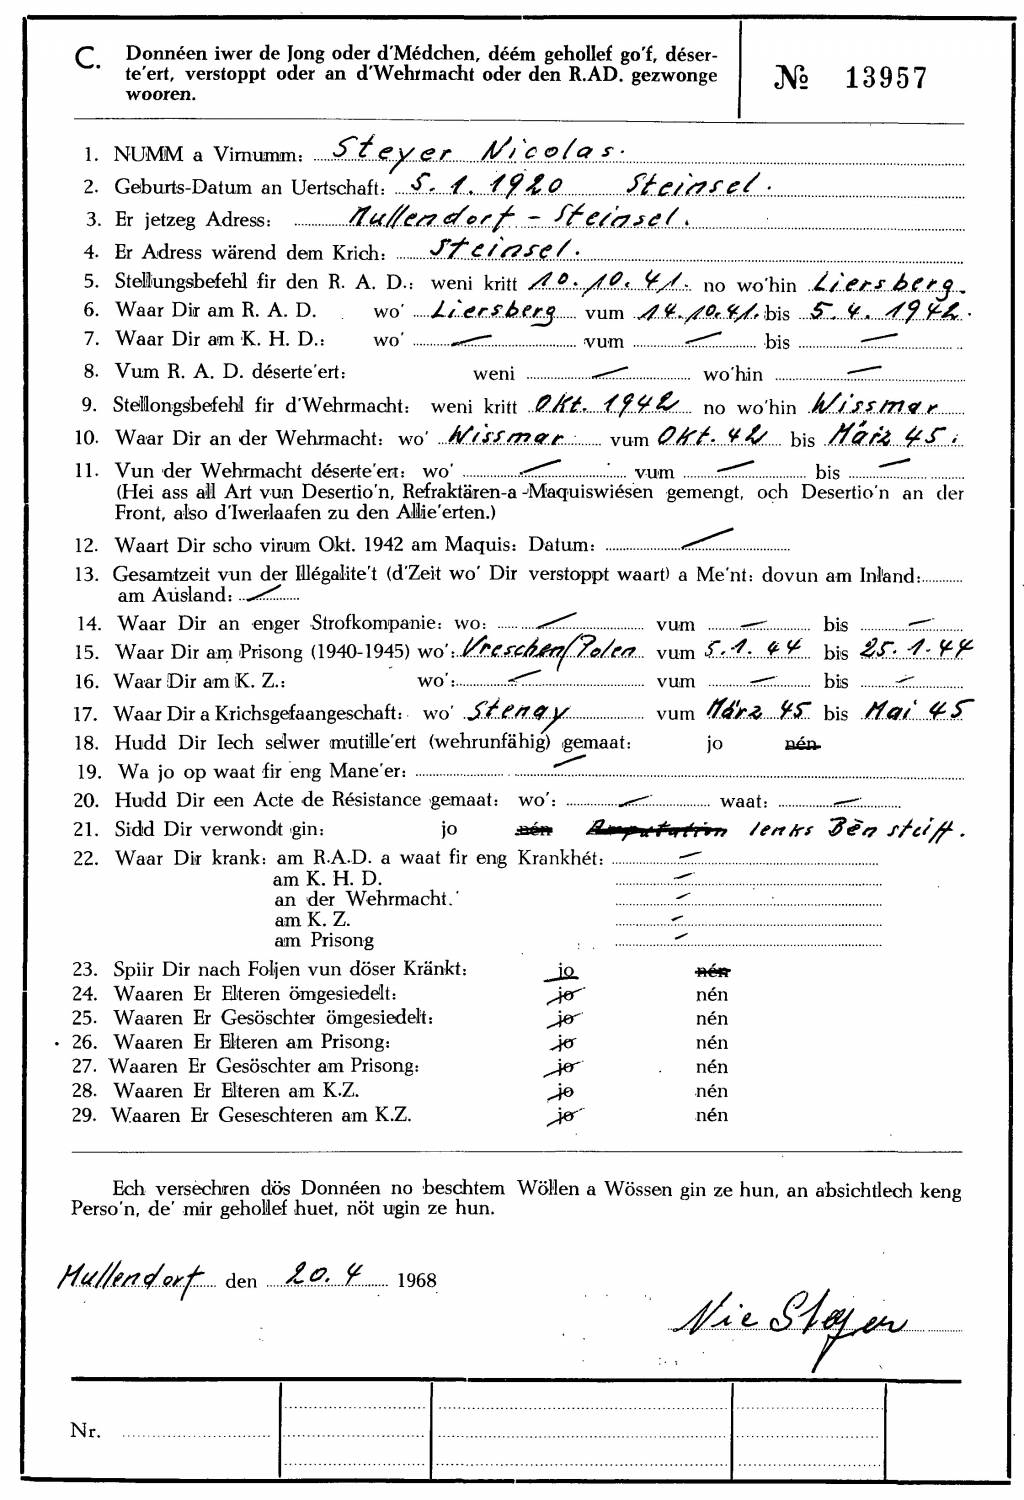 C. Donnéen iwer de Jong oder d'Médchen, déém gehollef go'f, déser-
te'ert, verstoppt oder an d'Wehrmacht oder den R.AD. gezwonge
wooren.
№ 13957
1. NUMM a Virnumm: Steyer Nicolas.
2. Geburts-Datum an Uertschaft: 5.1.1920 Steinsel.
3. Er jetzeg Adress: Mullendorf - Steinsel.
4. Er Adress wärend dem Krich: Steinsel.
5. Stellungsbefehl fir den R. A. D.: weni kritt 10.10.41. no wo'hin Liersberg.
6. Waar Dir am R. A. D. wo' Liersberg vum 14.10.41. bis 5.4.1942.
7. Waar Dir am K. H. D.: wo' — vum — bis —
8. Vum R. A. D. déserte'ert: weni — wo'hin —
9. Stellongsbefehl fir d'Wehrmacht: weni kritt Okt. 1942 no wo'hin Wissmar
10. Waar Dir an der Wehrmacht: wo' Wissmar vum Okt. 42 bis März 45.
11. Vun der Wehrmacht déserte'ert: wo' — vum — bis —
(Hei ass all Art vun Desertio'n, Refraktären-a-Maquiswiésen gemengt, och Desertio'n an der
Front, also d'Iwerlaafen zu den Allie'erten.)
12. Waart Dir scho virum Okt. 1942 am Maquis: Datum: —
13. Gesamtzeit vun der Illégalite't (d'Zeit wo' Dir verstoppt waart) a Me'nt: dovun am Inland:
am Ausland: —
14. Waar Dir an enger Strofkompanie: wo: — vum — bis —
15. Waar Dir am Prisong (1940-1945) wo': Vreschen/Polen vum 5.1.44 bis 25.1.44
16. Waar Dir am K. Z.: wo': — vum — bis —
17. Waar Dir a Krichsgefaangeschaft: wo' Stenay vum März 45 bis Mai 45
18. Hudd Dir Iech selwer mutille'ert (wehrunfähig) gemaat: jo nén
19. Wa jo op waat fir eng Mane'er: —
20. Hudd Dir een Acte de Résistance gemaat: wo': — waat: —
21. Sidd Dir verwondt gin: jo nén Amputation lenks Bèn steiff.
22. Waar Dir krank: am R.A.D. a waat fir eng Krankhét: —
am K. H. D. —
an der Wehrmacht. —
am K. Z. —
am Prisong —
23. Spiir Dir nach Foljen vun döser Kränkt: jo nén
24. Waaren Er Elteren ömgesiedelt: jo nén
25. Waaren Er Gesöschter ömgesiedelt: jo nén
26. Waaren Er Elteren am Prisong: jo nén
27. Waaren Er Gesöschter am Prisong: jo nén
28. Waaren Er Elteren am K.Z. jo nén
29. Waaren Er Geseschteren am K.Z. jo nén
Ech versechren dös Donnéen no beschtem Wöllen a Wössen gin ze hun, an absichtlech keng
Perso'n, de' mir gehollef huet, nöt ugin ze hun.
Mullendorf den 20.4 1968
Nic Steyer
Nr.